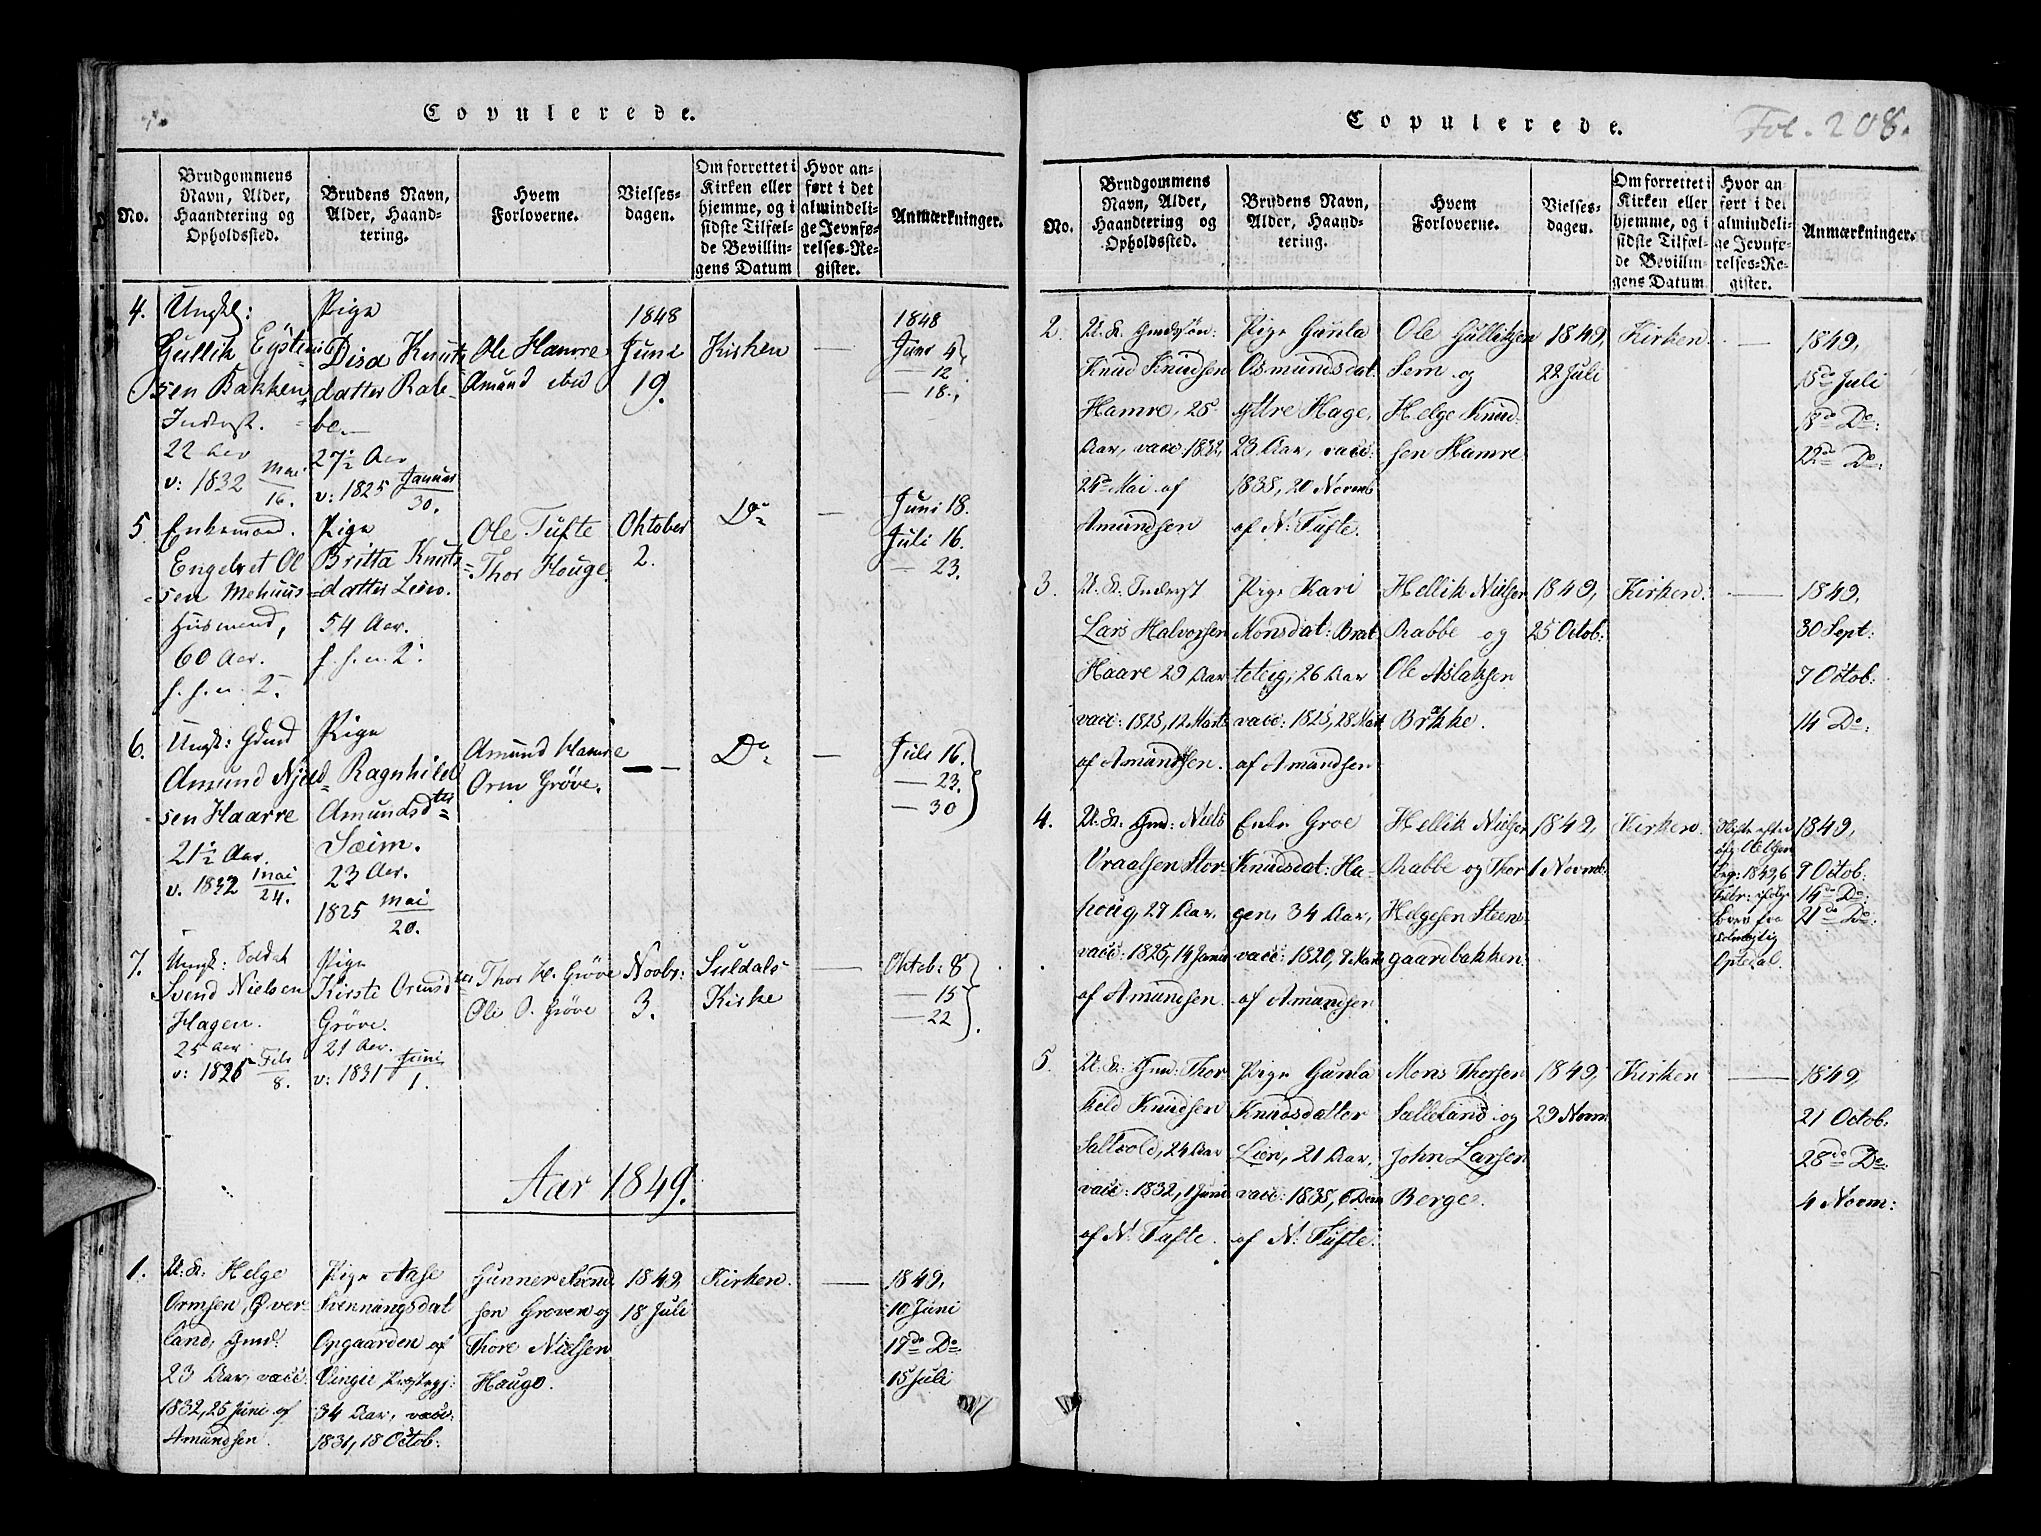 Copulerede.
No.
Brudgommens
Navn, Alder,
Haandtering og
Opholdssted.
Brudens Navn,
Alder, Haand-
tering.
Hvem
Forloverne.
Vielses-
dagen.
Om forrettet i
Kirken eller
hjemme, og i
sidste Tilfæl-
de Bevillin-
gens Datum
Hvor an-
ført i det
almindeli-
ge Jevnfø-
relses-Re-
gister.
Anmærkninger.
4.
Ungk:
Gullik Eystens
sen Bakken
Inderst.
22 Aar
v: 1832 Mai 16.
Pige
Disa Knuts
datter Rabe-
be.
27½ Aar
v: 1825 Januar 30.
Ole Hamre
Amund ibid
1848
Juni
19.
Kirken
—
1848
Juni 4
— 12
— 18.
5.
Enkemand.
Engelbret Ol
sen Mehuus
Husmand,
60 Aar.
Pige
Britta Knuts
datter Lien.
54 Aar.
Ole Tufte
Thor Houge.
Oktober
2.
Do
—
Juni 18.
Juli 16.
— 23.
6.
Ungk: Gdmd
Amund Njeld
sen Haarre
21½ Aar.
v. 1832 Mai 24.
Pige
Ragnhild
Amundsdter
Sæim.
23 Aar.
1825 Mai 20.
Amund Hamre
Orm Grøve.
—
Do
—
Juli 16.
— 23.
— 30
7.
Ungk: Soldat
Svend Nielsen
Hagen.
25 Aar
Pige
Kirste Ormsdter
Grøve.
21 Aar.
v: 1831 Juni 1.
Thor H. Grøve
Ole O. Grøve
Novbr:
3.
Suldals
Kirke
—
Oktob: 8
— 15
— 22
Aar 1849.
1.
U: K: Helge
Ormsen Øver-
land, Gmd:
23 Aar, vacc:
1832, 25 Juni af
Amundsen.
Pige Aase
Svenningsdat
Opgaarden af
Vinge Præstegj:
34 Aar, vacc:
1831, 18 Octob:
Gunner Svend
sen Groven og
Thore Nielsen
Haugo.
1849,
18 Juli
Kirken.
—
1849,
10 Juni
17de Do
15 Juli
Copulerede.
Fol. 208.
No.
Brudgommens
Navn, Alder,
Haandtering og
Opholdssted.
Brudens Navn,
Alder, Haand-
tering.
Hvem
Forloverne.
Vielses-
dagen.
Om forrettet i
Kirken eller
hjemme, og i
sidste Tilfæl-
de Bevillin-
gens Datum
Hvor an
ført i det
almindeli-
ge Jevnfø-
relses-Re-
gister.
Anmærkninger.
2.
U. K. Gmdsøn:
Knud Knudsen
Hamre, 25
Aar, vacc: 1832,
Mai af
Amundsen
Pige Gunla
Osmundsdat.
Ytre Hage,
23 Aar, vacc:
1835, 20 Novemb
af N: Tufte.
Ole Gulliksen
Sem og
Helge Knud-
sen Hamre
1849,
22 Juli
Kirken.
—
1849,
15de Juli
18de Do:
22de Do:
3.
U. K. Inderst
Lars Halvorsen
Haare 29 Aar
vacc: 1823, 12 Marts
af Amundsen.
Pige Kari
Monsdat: Brat
teteig, 26 Aar
vacc: 1825, 28 Mart
af Amundsen
Hellik Nielsen
Rabbe og
Ole Aslaksen
Brakke.
1849,
25 Octob:
Kirken:
—
1849,
30 Sept:
7 Octob:
14 Do:
4.
U. K. Gmd: Niels
Vraalsen Stor-
houg, 27 Aar,
vacc: 1825, 14 Junii
af Amundsen.
Enke Groe
Knudsdat: Ha-
gen, 34 Aar,
vacc: 1820, 7 Marts
af Amundsen
Hellik Nielsen
Rabbe og Thor
Helgesen Steens
gaardbakken.
1849,
1 Novmb:
Kirken.
1849,
7 Octob:
14de Do:
21de Do:
5.
U. K: Gmd: Thor
keld Knudsen
Sallvold, 24 Aar
vacc: 1832, 1 Juni
af N: Tufte.
Pige Gunla
Knudsdatter
Lien, 21 Aar,
vacc: 1835, 6 Decm
af N: Tufte.
Mons Thorsen
Sælleland og
John Larsen
Berge.
1849,
29 Novm
Kirken
—
1849,
21 Octob.
28de Do:
4 Novm: